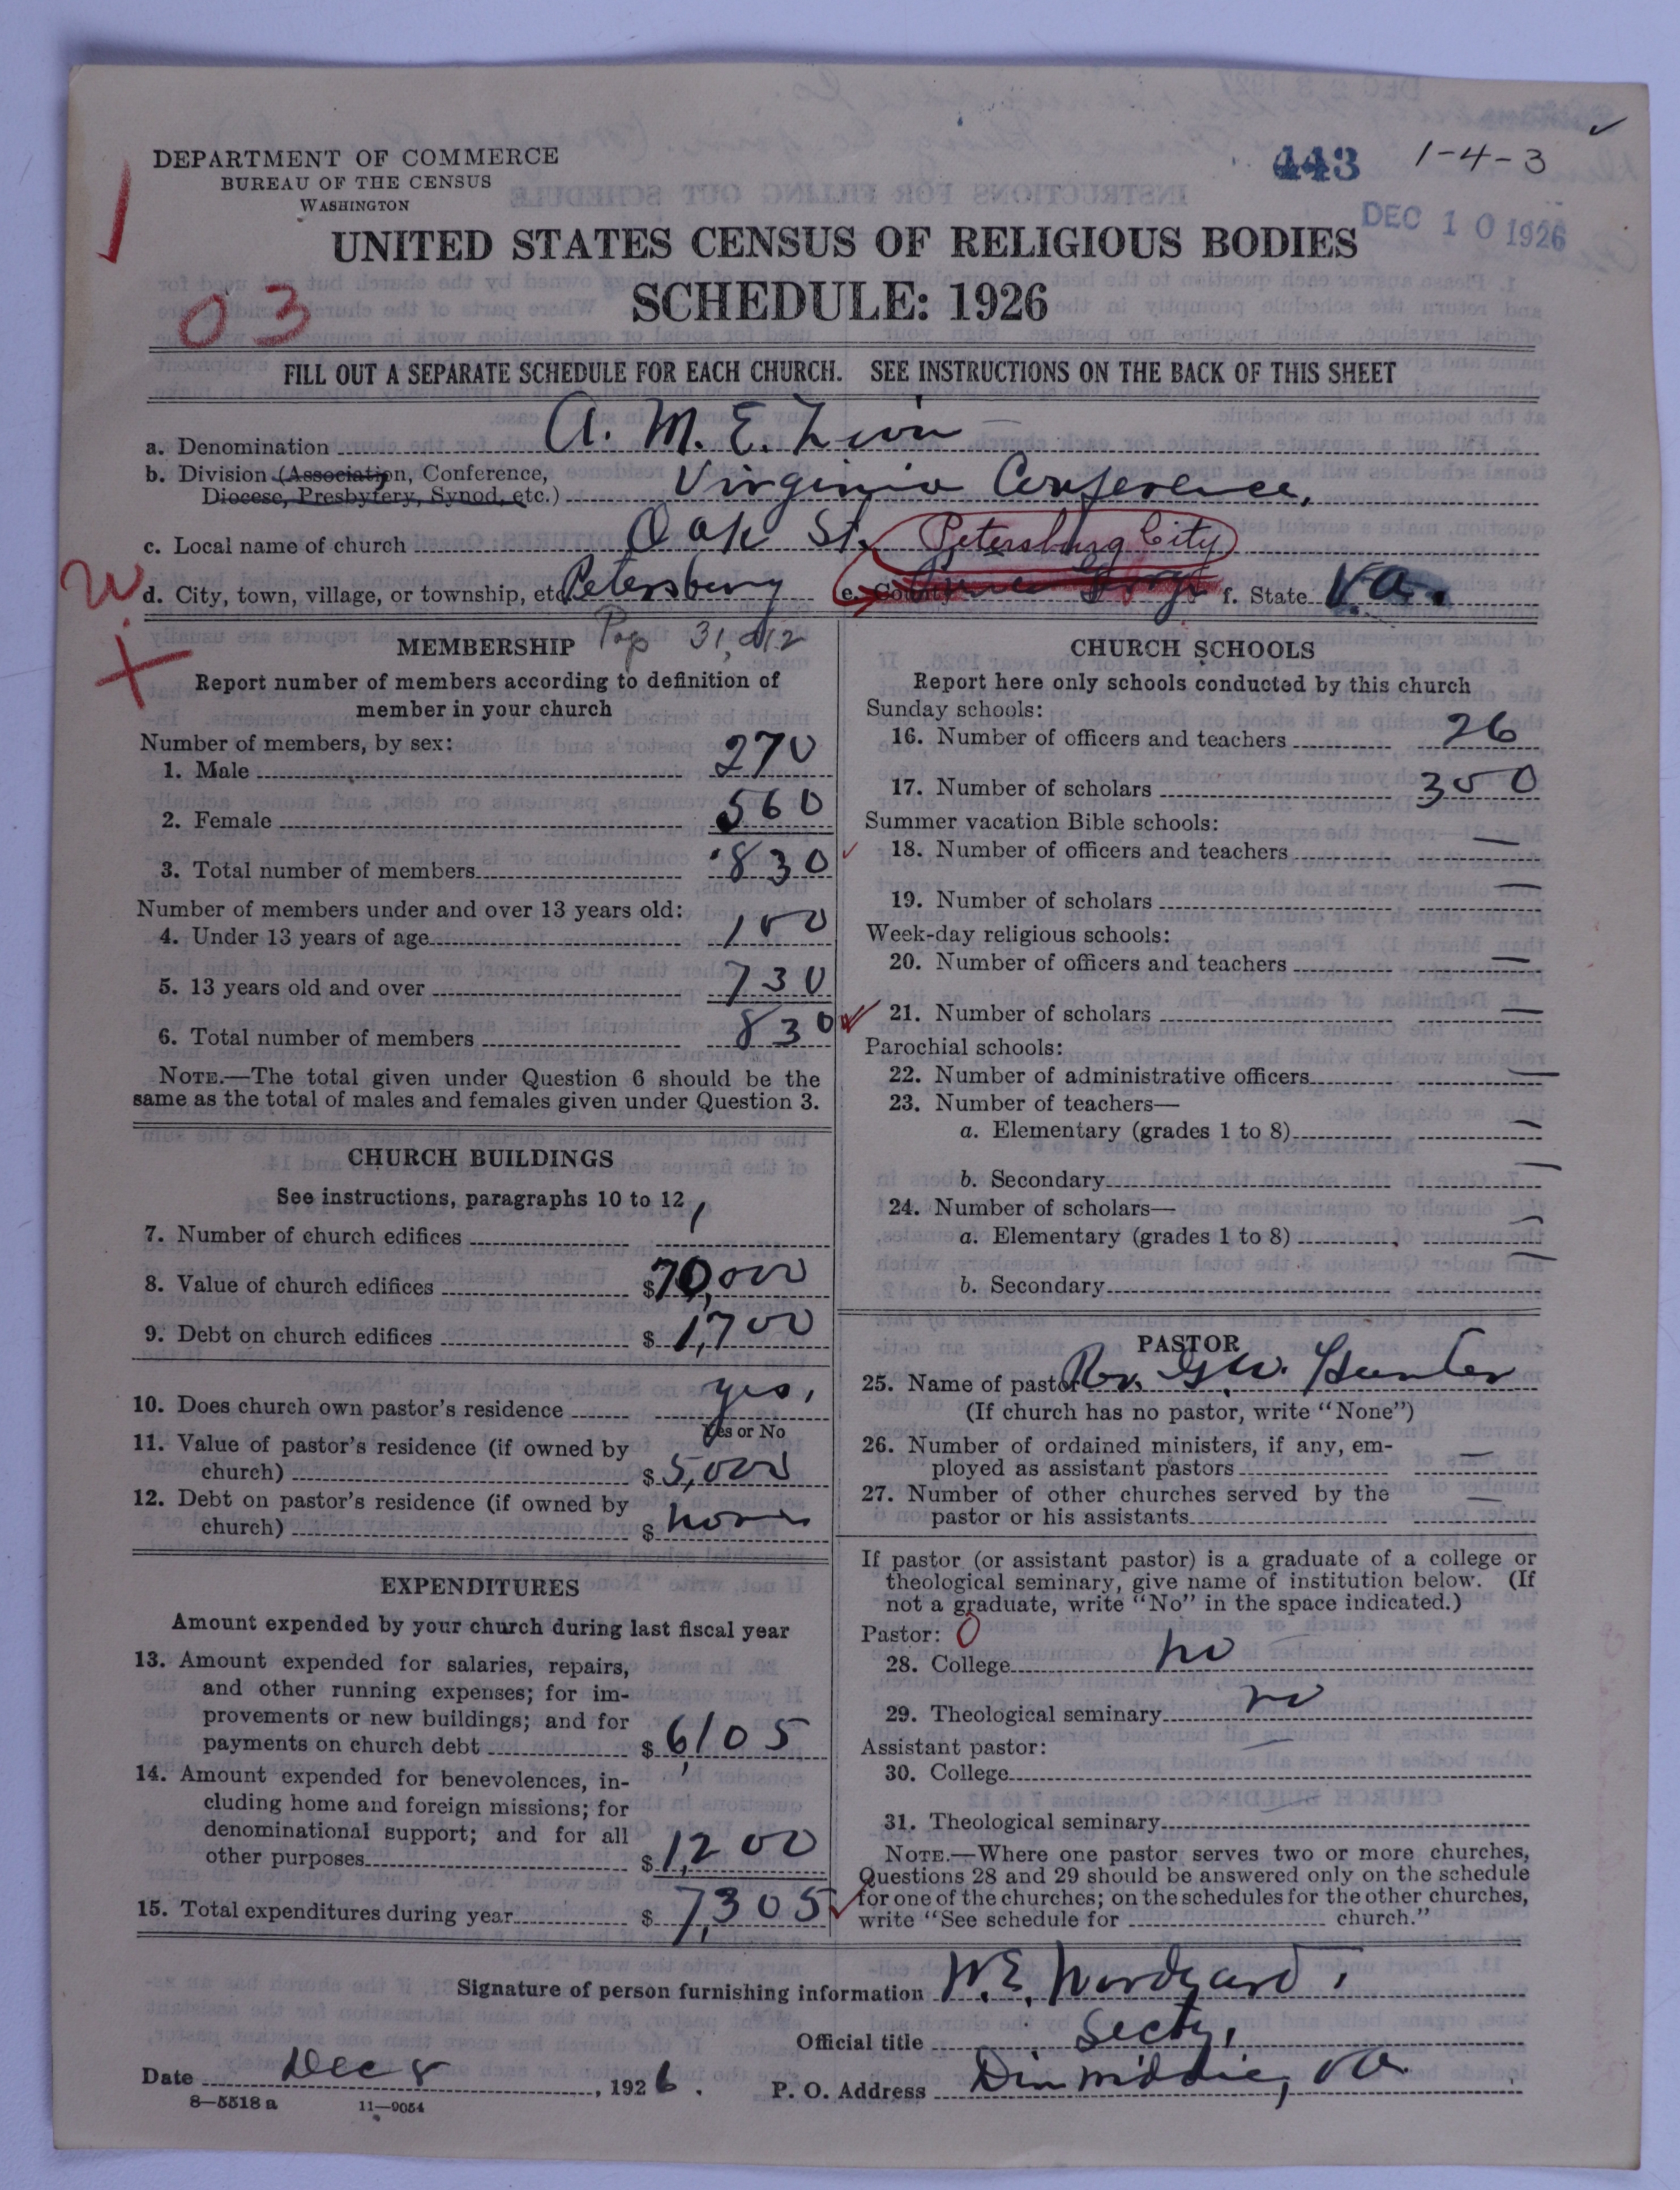 DEPARTMENT OF COMMERCE
BUREAU OF THE CENSUS
WASHINGTON
443 1-4-3
DEC 10 1926
UNITED STATES CENSUS OF RELIGIOUS BODIES
SCHEDULE: 1926
03
FILL OUT A SEPARATE SCHEDULE FOR EACH CHURCH. SEE INSTRUCTIONS ON THE BACK OF THIS SHEET
a. Denomination A. M. E. Zion
b. Division (Association, Conference, Diocese, Presbytery, Synod, etc.) Virginia Conference,
c. Local name of church Oak St. Petersburg City
d. City, town, village, or township, etc. Petersburg e. County Prince George f. State Va.
MEMBERSHIP Pop 31,012
Report number of members according to definition of
member in your church
Number of members, by sex:
1. Male 270
2. Female 560
3. Total number of members 830
Number of members under and over 13 years old:
4. Under 13 years of age 100
5. 13 years old and over 730
6. Total number of members 830
NOTE.—The total given under Question 6 should be the
same as the total of males and females given under Question 3.
CHURCH BUILDINGS
See instructions, paragraphs 10 to 12
7. Number of church edifices 1
8. Value of church edifices $70,000
9. Debt on church edifices $1,700
10. Does church own pastor's residence yes,
Yes or No
11. Value of pastor's residence (if owned by
church) $5,000
12. Debt on pastor's residence (if owned by
church) $none
EXPENDITURES
Amount expended by your church during last fiscal year
13. Amount expended for salaries, repairs,
and other running expenses; for im-
provements or new buildings; and for
payments on church debt $6,105
14. Amount expended for benevolences, in-
cluding home and foreign missions; for
denominational support; and for all
other purposes $1,200
15. Total expenditures during year $7,305
CHURCH SCHOOLS
Report here only schools conducted by this church
Sunday schools:
16. Number of officers and teachers 26
17. Number of scholars 350
Summer vacation Bible schools:
18. Number of officers and teachers —
19. Number of scholars —
Week-day religious schools:
20. Number of officers and teachers —
21. Number of scholars —
Parochial schools:
22. Number of administrative officers —
23. Number of teachers—
a. Elementary (grades 1 to 8) —
b. Secondary —
24. Number of scholars—
a. Elementary (grades 1 to 8) —
b. Secondary —
PASTOR
25. Name of pastor Rev. G. W. Hunter
(If church has no pastor, write "None")
26. Number of ordained ministers, if any, em-
ployed as assistant pastors —
27. Number of other churches served by the
pastor or his assistants —
If pastor (or assistant pastor) is a graduate of a college or
theological seminary, give name of institution below. (If
not a graduate, write "No" in the space indicated.)
Pastor: 0
28. College no
29. Theological seminary no
Assistant pastor: —
30. College
31. Theological seminary —
NOTE.—Where one pastor serves two or more churches,
Questions 28 and 29 should be answered only on the schedule
for one of the churches; on the schedules for the other churches,
write "See schedule for church."
Signature of person furnishing information W. E. Woodyard,
Official title Secty,
Date Dec 8, 1926. P. O. Address Dinwiddie, Va.
8—5518 a 11—9054